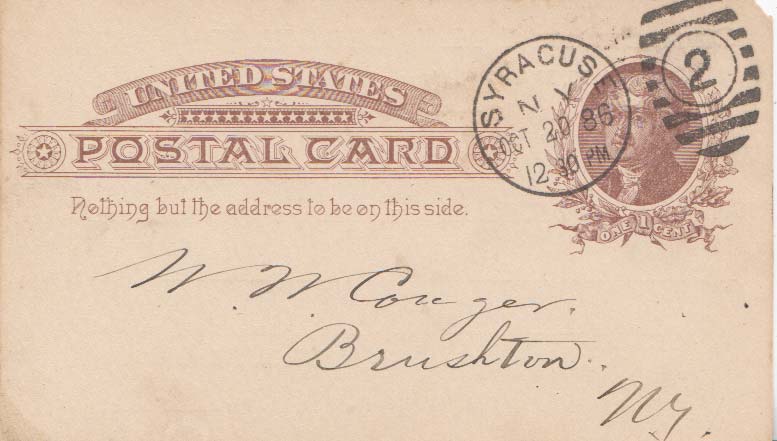 UNITED STATES
POSTAL CARD
Nothing but the address to be on this side.
SYRACUSE
N.Y.
OCT 20 86
12 30 PM
2
ONE 1 CENT
W. W Conger.
Brushton.
Ny.